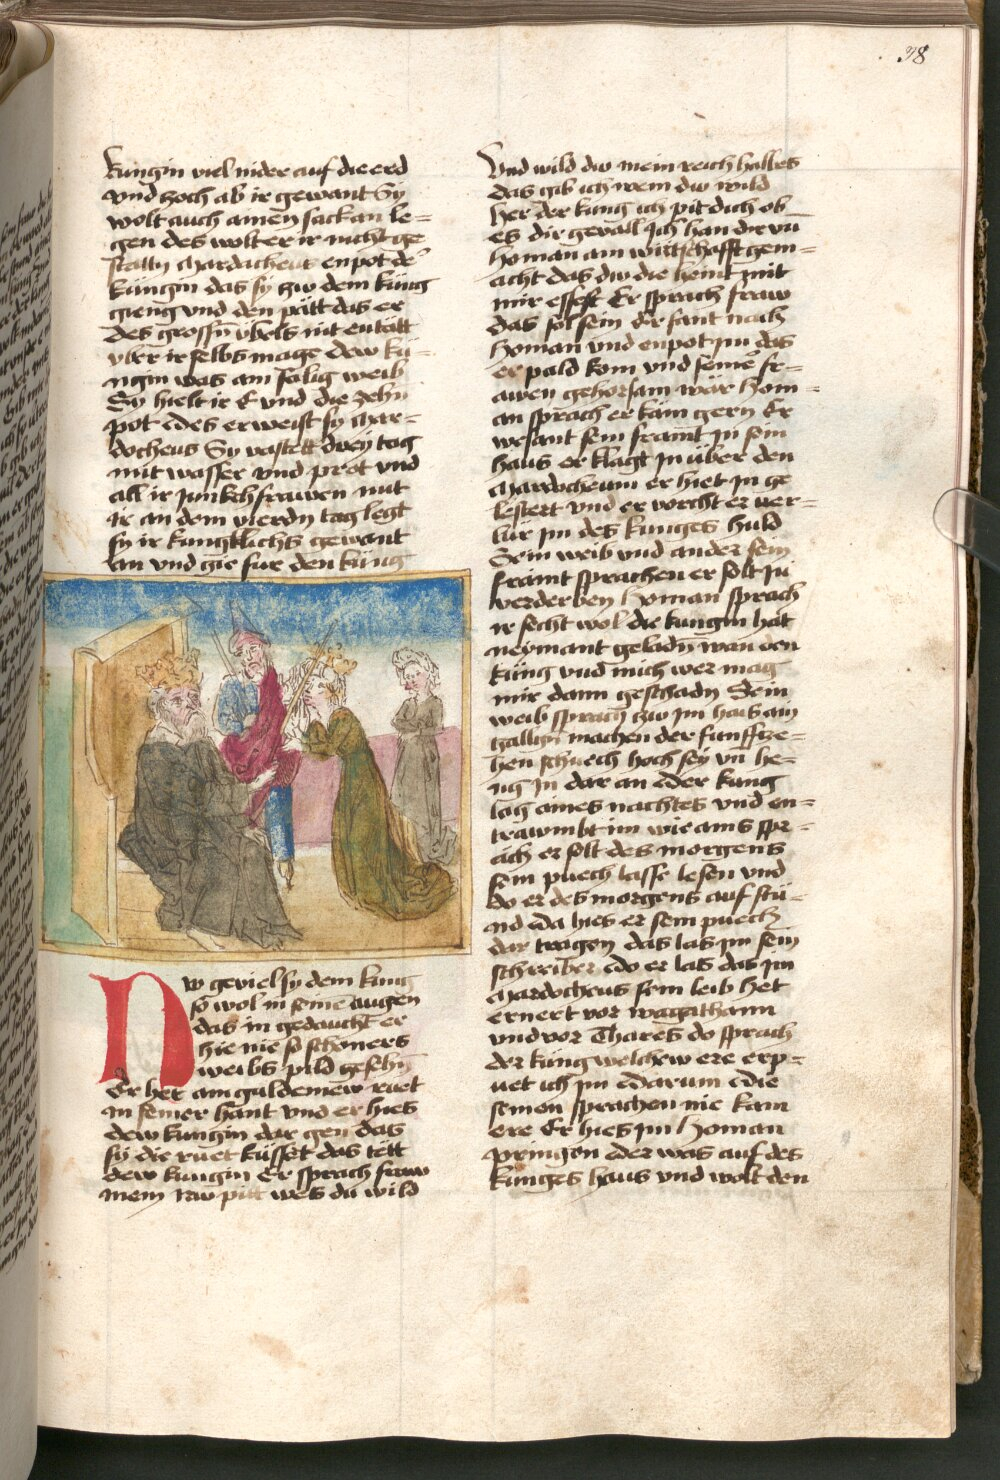 38
kungin viel nider auf die erd
vnd zoch ab ir gewant Sy
wolt auch ainen sack an le=
gen des wolt er ir nicht ge
statn Mardacheus enpot de
kungin das sy zw dem kung
gieng vnd den pätt das er
des grossn vbels nit entätt
vber ir selbs mage dew ku=
ngin was ain sälig weib
Sy hielt ir E vnd die zehn
pot des erweist sy Mar=
docheus Sy vastett drey tag
mit wasser vnd prot vnd
all ir junkchfrawen mit
ir an dem vierdn tag legt
sy ir kungklichs gewant
an vnd gie für den kung
Nw geviel sy dem kung
so wol in seine augen
das in gedaucht er
hie nie so schoners
weibs pild gesehn
Er het ain guldeinew ruet
in seiner hant vnd er hies
dew kungin dar gen das
sy die ruet küsset das tett
dew kungin Er sprach fraw
mein nw pitt wes du wild
Vnd wild dw mein reich halbes
das gib ich wem dw wild
her der kung ich pit dich ob
es dir gevall Ich han dir vn
homan ain wirtschafft gem=
acht das dw die heint mit
mir essest Er sprach fraw
das sol sein Er sant nach
homan vnd enpot im das
er pald kom vnd seiner fr=
awen gehorsam wär hom=
an sprach er kam gern Er
wesant sein fraint in sein
haus er klagt in über den
Mardocheum er hiet in ge
lestert vnd er vorcht er ver=
lür im des kunges huld
Sein weib vnd ander sein
fraint sprachen er solt in
verderben homan sprach
ir secht wol die kungin hat
neymant geladn wan den
kung vnd mich wer mag
mir dann geschadn Sein
weib sprach zw im hais ain
galign machen der funffze=
hen schuech hoch sey vn he=
ng in dar an der kung
lag aines nachtes vnd en=
trawmbt im wie ains spr=
äch er solt des morgens
sein puech lasse lesen vnd
do er des morgens auf stu=
nd da hies er sein puech
dar tragen das las im sein
schreiber do er las das im
Mardocheus sein leib het
ernert vor wagathann
vnd vor Thares do sprach
der kung welchew ere erp=
uet ich im darum die
seinen sprachen nie kain
ere Er hies im homan
pringen der was auf des
kunges haus vnd wolt den